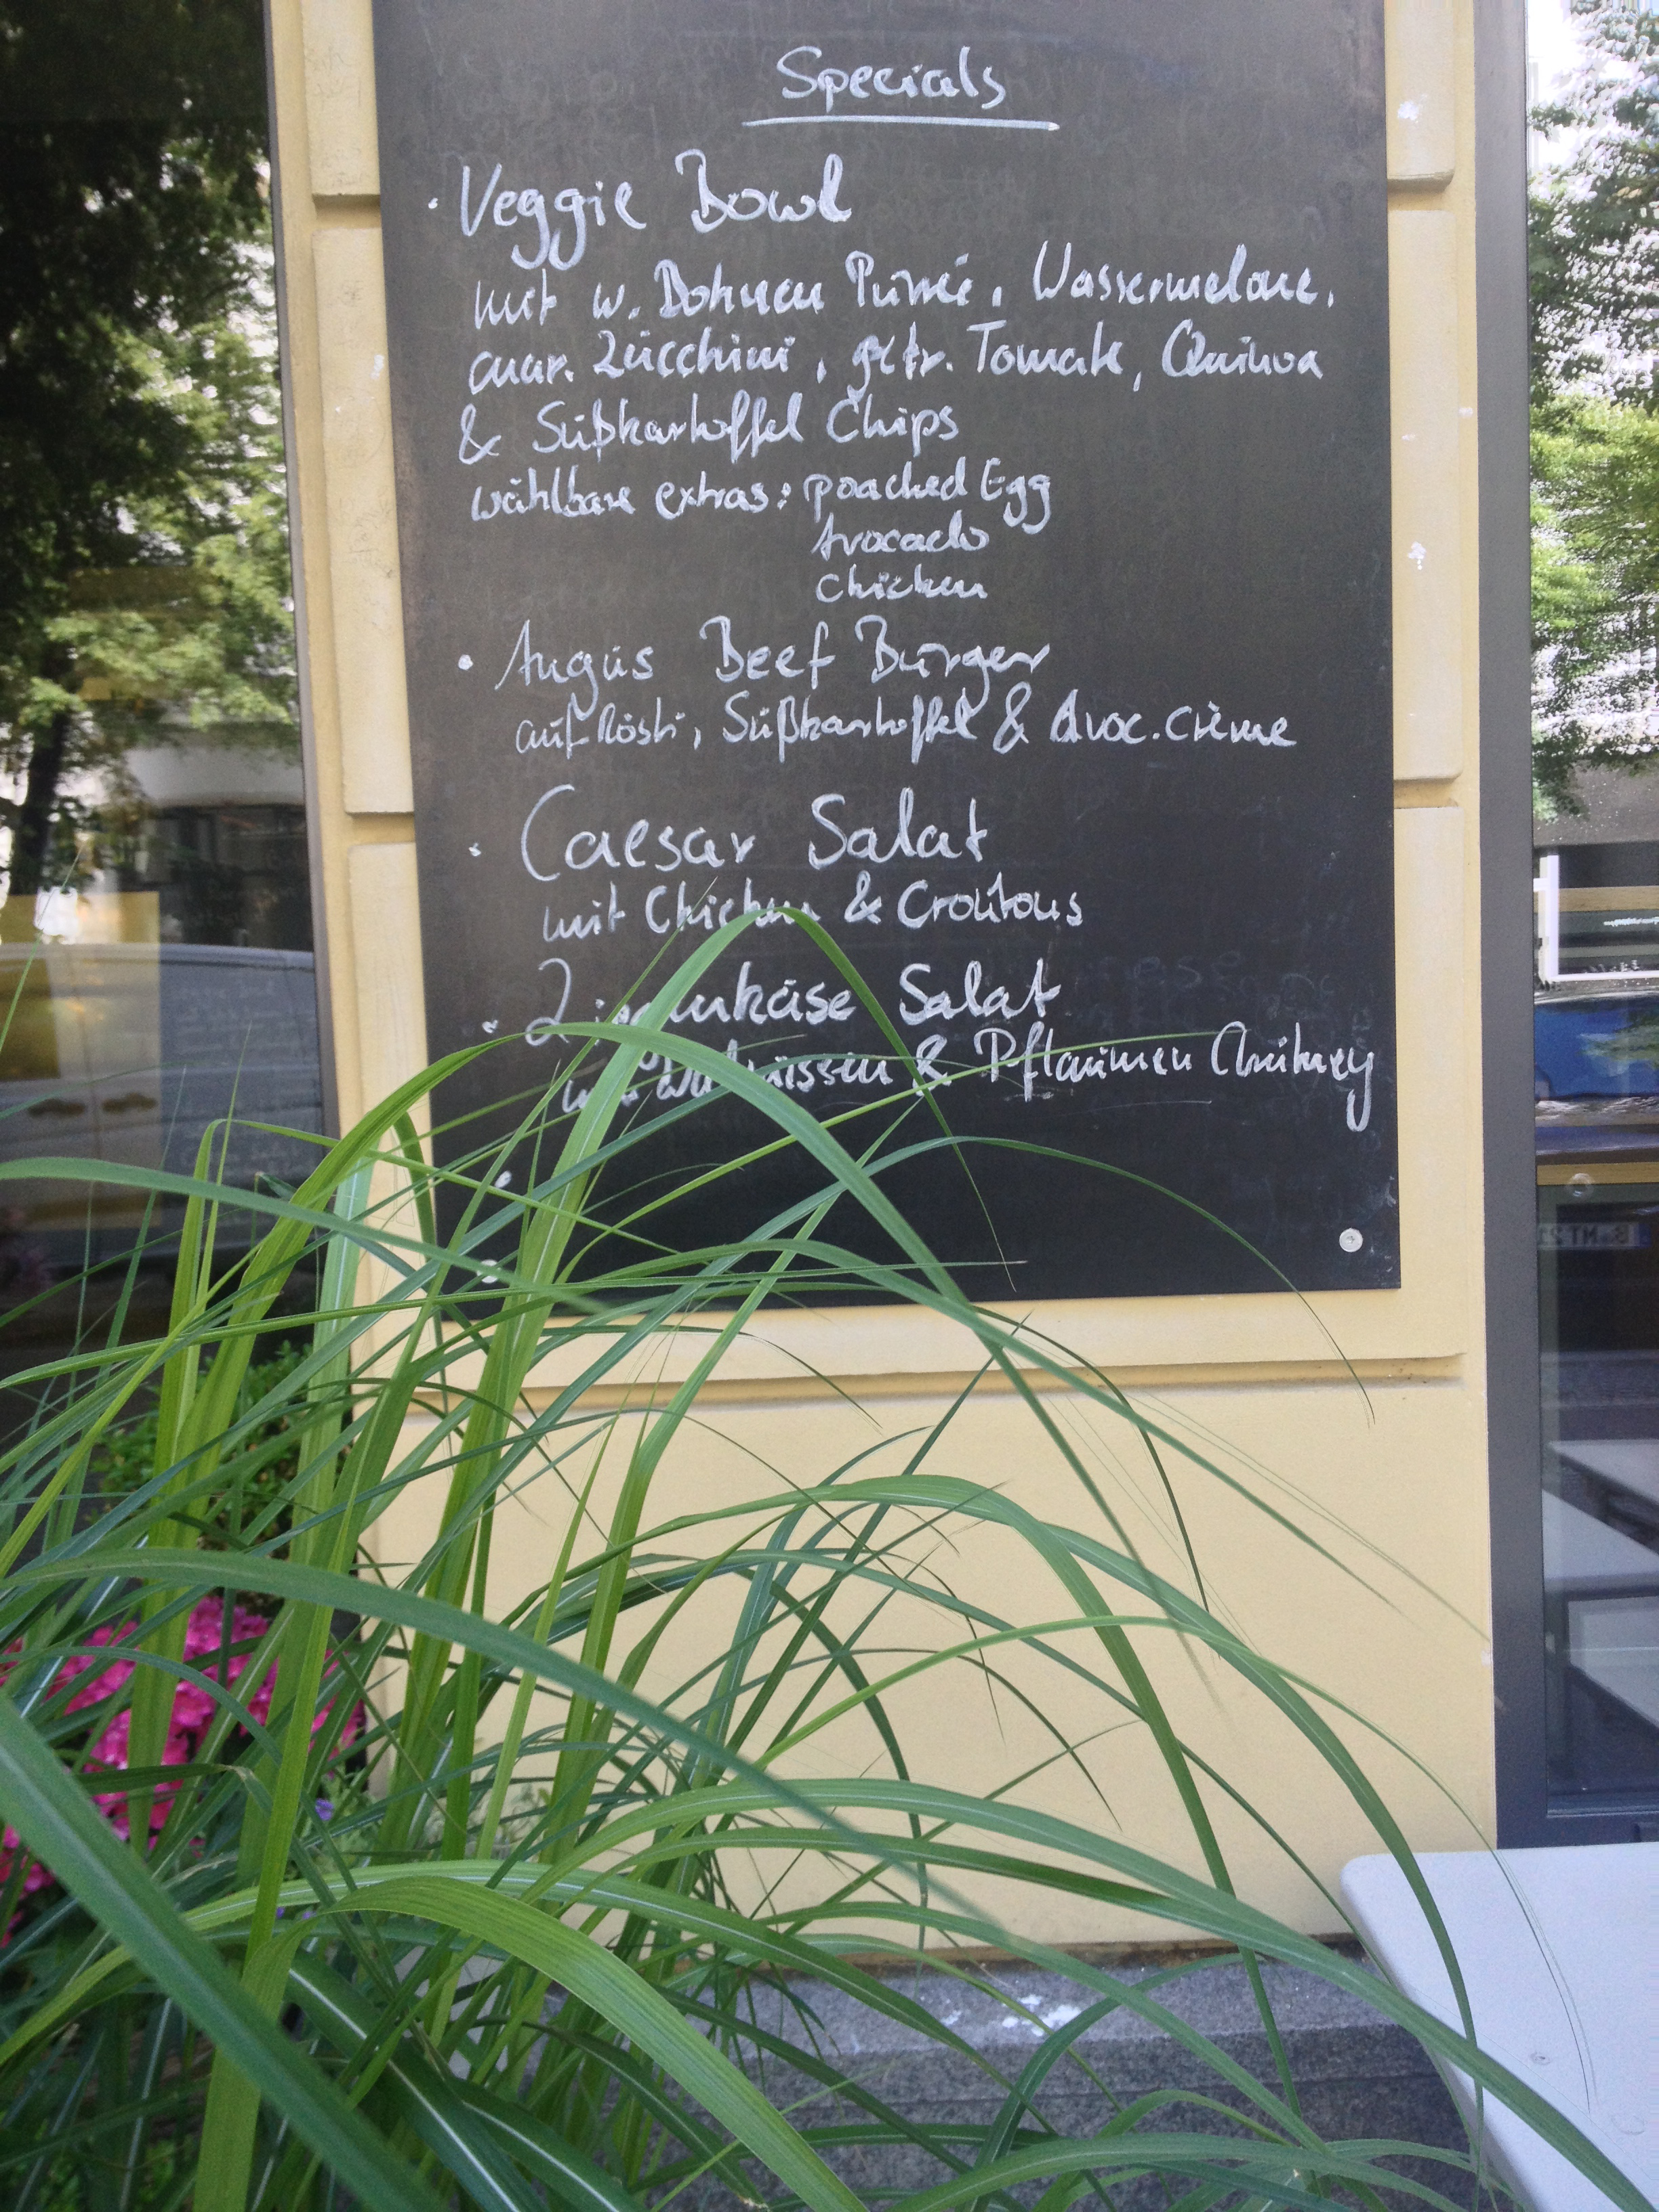 Specials
· Veggie Bowl
mit w. Bohnen Püree, Wassermelone,
mar. Zucchini, getr. Tomate, Quinoa
& Süßkartoffel Chips
wählbare extras: poached Egg
Avocado
Chicken
· Angus Beef Burger
auf Rösti, Süßkartoffel & Avoc. Crème
· Caesar Salat
mit Chicken & Croûtons
· Ziegenkäse Salat
mit Walnüssen & Pflaumen Chutney